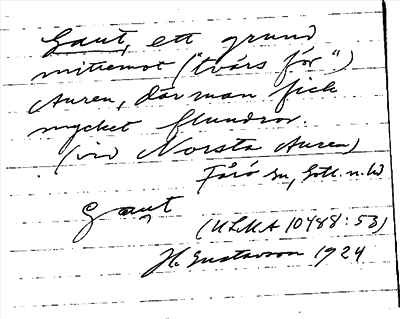 Gaut, ett grund
mittemot ("tvärs för")
Auren, där man fick
mycket flundror.
(vid Norsta Auren)
Fårö sn, Gotl. n. hd
Gaut
(ULMA 10488:53)
H. Gustavson 1924